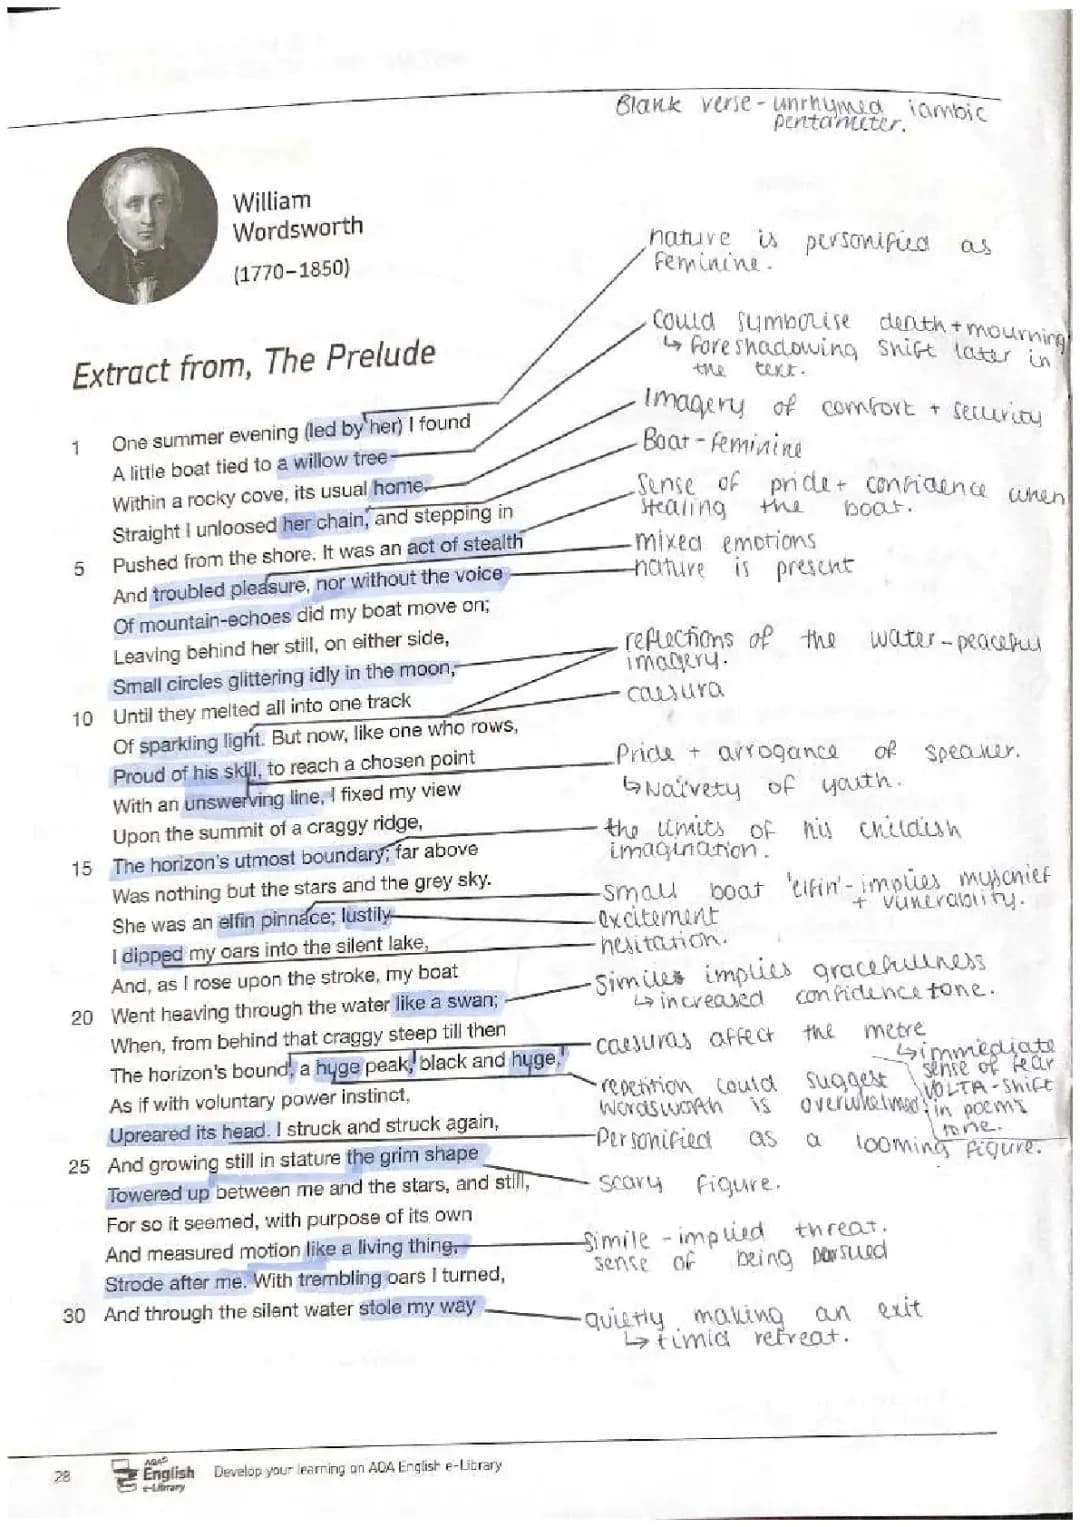 Blank verse - unrhymed iambic
pentameter.
William
Wordsworth
(1770–1850)
nature is personified as
feminine.
Could symbolise death + mourning
↳ foreshadowing shift later in
the text.
Extract from, The Prelude
Imagery of comfort + security
Boat - feminine
Sense of pride + confidence when
stealing the boat.
mixed emotions
nature is present
reflections of the water - peaceful
imagery.
caesura
Pride + arrogance of speaker.
↳ Naïvety of youth.
the limits of his childish
imagination.
small boat 'elfin' - implies myschief
+ vunerability.
excitement
hesitation.
Similes implies gracefullness
↳ increased confidence tone.
caesuras affect the metre
↳ immediate
sense of fear
VOLTA - shift
in poems
tone.
repetition could suggest
Wordsworth is overwhelmed
Personified as a looming figure.
scary figure.
Simile - implied threat.
sense of being persued
quietly making an exit
↳ timid retreat.
1 One summer evening (led by her) I found
A little boat tied to a willow tree
Within a rocky cove, its usual home.
Straight I unloosed her chain, and stepping in
5 Pushed from the shore. It was an act of stealth
And troubled pleasure, nor without the voice
Of mountain-echoes did my boat move on;
Leaving behind her still, on either side,
Small circles glittering idly in the moon,
10 Until they melted all into one track
Of sparkling light. But now, like one who rows,
Proud of his skill, to reach a chosen point
With an unswerving line, I fixed my view
Upon the summit of a craggy ridge,
15 The horizon's utmost boundary; far above
Was nothing but the stars and the grey sky.
She was an elfin pinnace; lustily
I dipped my oars into the silent lake,
And, as I rose upon the stroke, my boat
20 Went heaving through the water like a swan;
When, from behind that craggy steep till then
The horizon's bound, a huge peak, black and huge,
As if with voluntary power instinct,
Upreared its head. I struck and struck again,
25 And growing still in stature the grim shape
Towered up between me and the stars, and still,
For so it seemed, with purpose of its own
And measured motion like a living thing,
Strode after me. With trembling oars I turned,
30 And through the silent water stole my way
28
AQA
English
e-Library
Develop your learning on AQA English e-Library